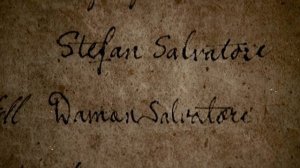 Stefan Salvatore
ll Damon Salvatore